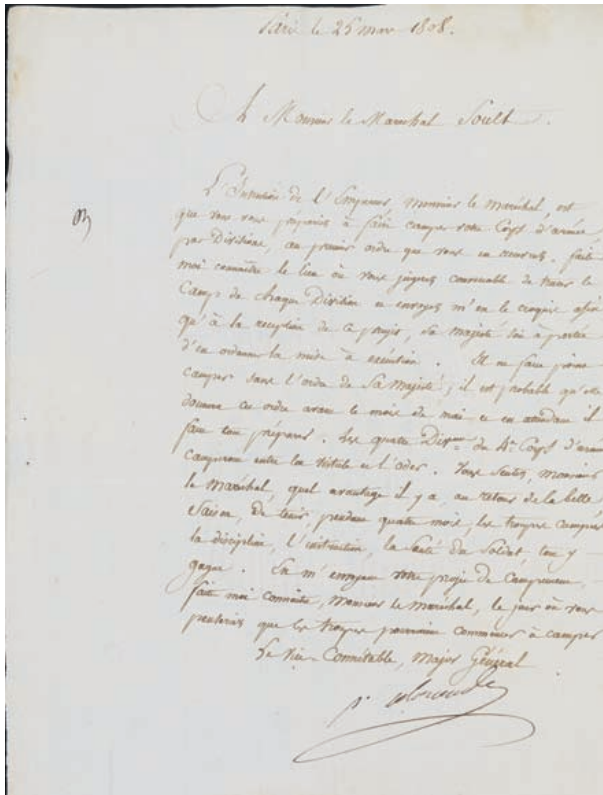 Paris le 25 mars 1808.
A Monsieur le Maréchal Soult.
L'Intention de l'Empereur, monsieur le maréchal, est
que vous vous prépariez à faire camper votre Corps d'armée,
par Divisions, au premier ordre que vous en recevrez. faites
moi connaître le lieu où vous jugerez convenable de tracer le
Camp de chaque Division et envoyez m'en le croquis afin
qu'à la reception de ce projet, Sa majesté soit à portée
d'en ordonner la mise à exécution. Il ne faut point
camper sans l'ordre de Sa Majesté; il est probable qu'elle
donnera cet ordre avant le mois de mai et en attendant il
faut tout préparer. Les quatre Dix.ons du 4e Corps d'armée
camperont entre la Vistule et l'Oder. Vous sentez, monsieur
le maréchal, quel avantage il y a, au retour de la belle
Saison, de tenir, pendant quatre mois, les troupes campées
la discipline, l'instruction, la Santé du Soldat, tout y
gagne. En m'envoyant votre projet de Campement,
faites moi connaitre, monsieur le maréchal, le jour où vous
penseriez que les troupes pourraient commencer à camper
Le Vice-Connétable, Major Général